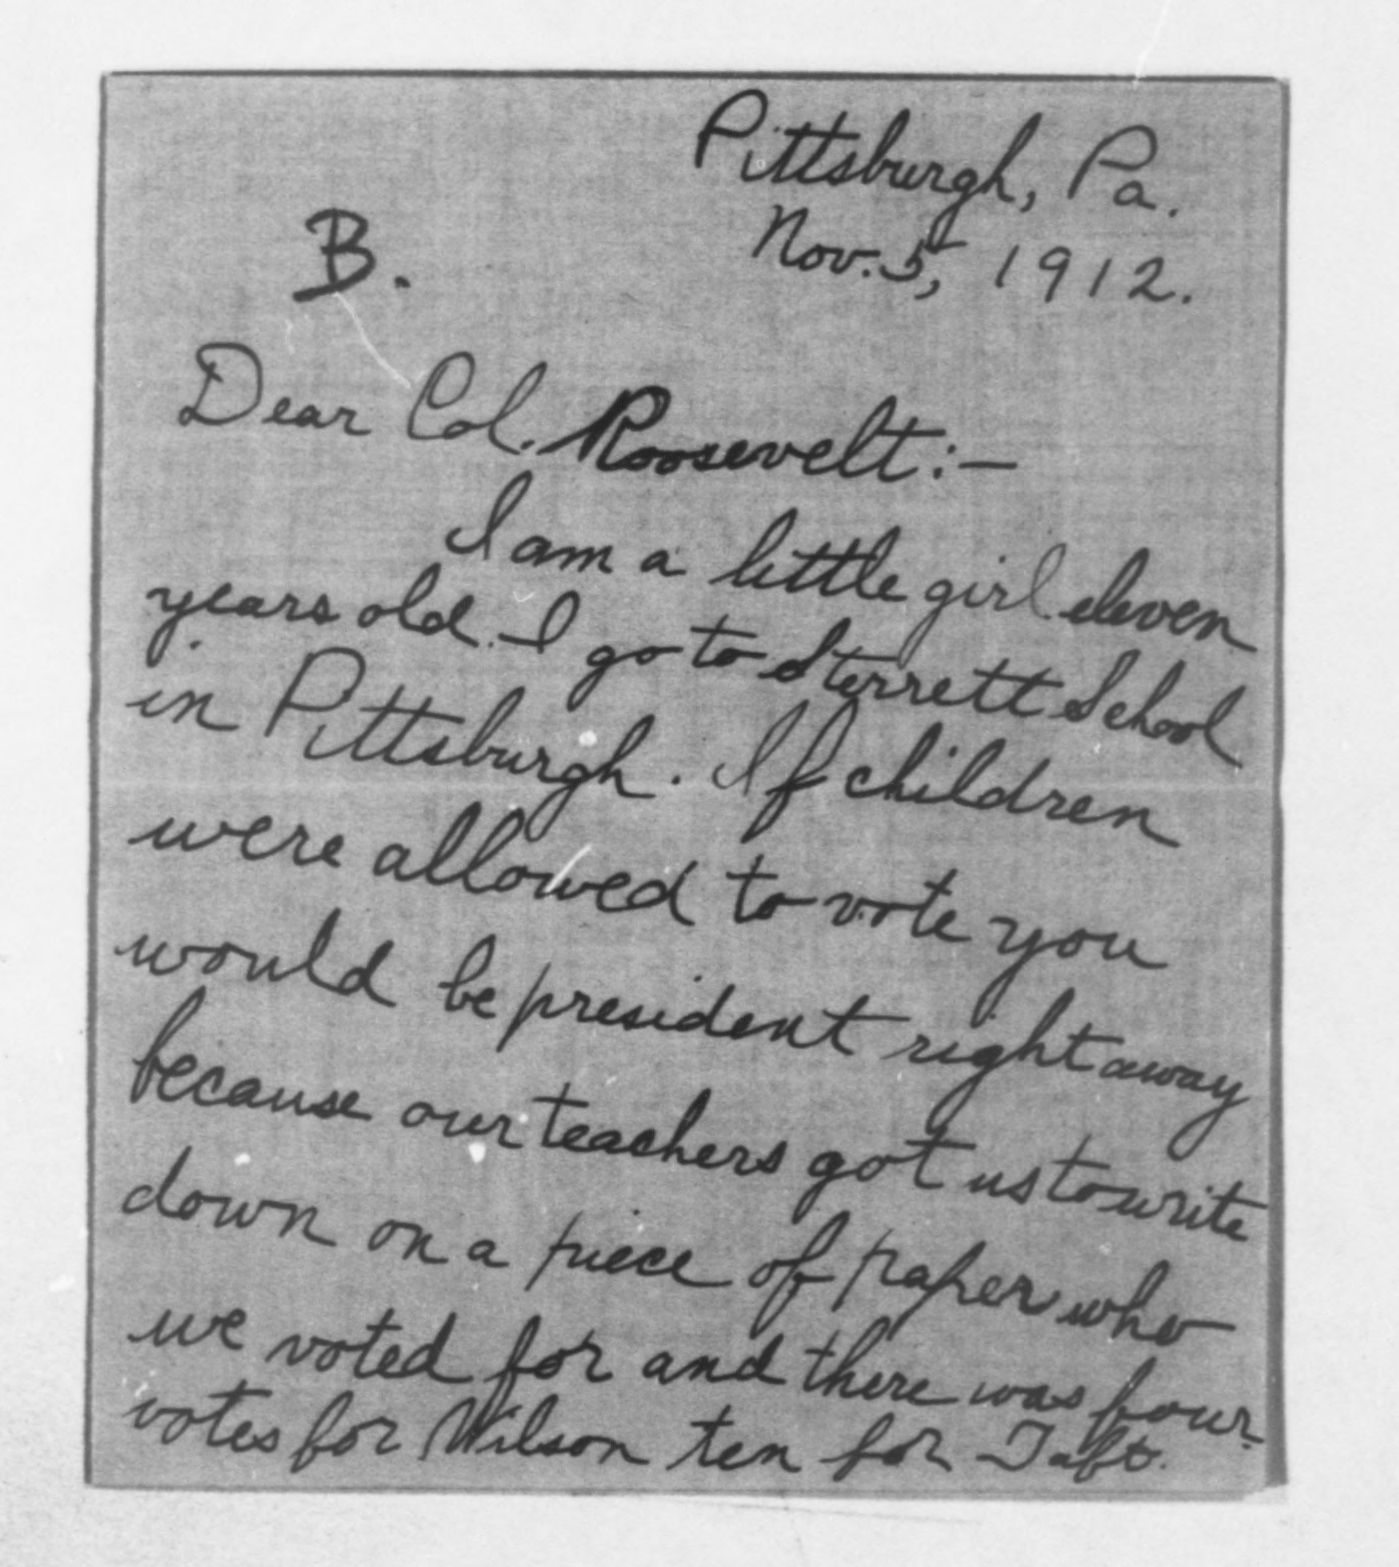 Pittsburgh, Pa.
Nov. 5, 1912.
B.
Dear Col. Roosevelt:—
I am a little girl eleven
years old. I go to Sterrett School
in Pittsburgh. If children
were allowed to vote you
would be president right away
because our teachers got us to write
down on a piece of paper who
we voted for and there was four
votes for Wilson ten for Taft.